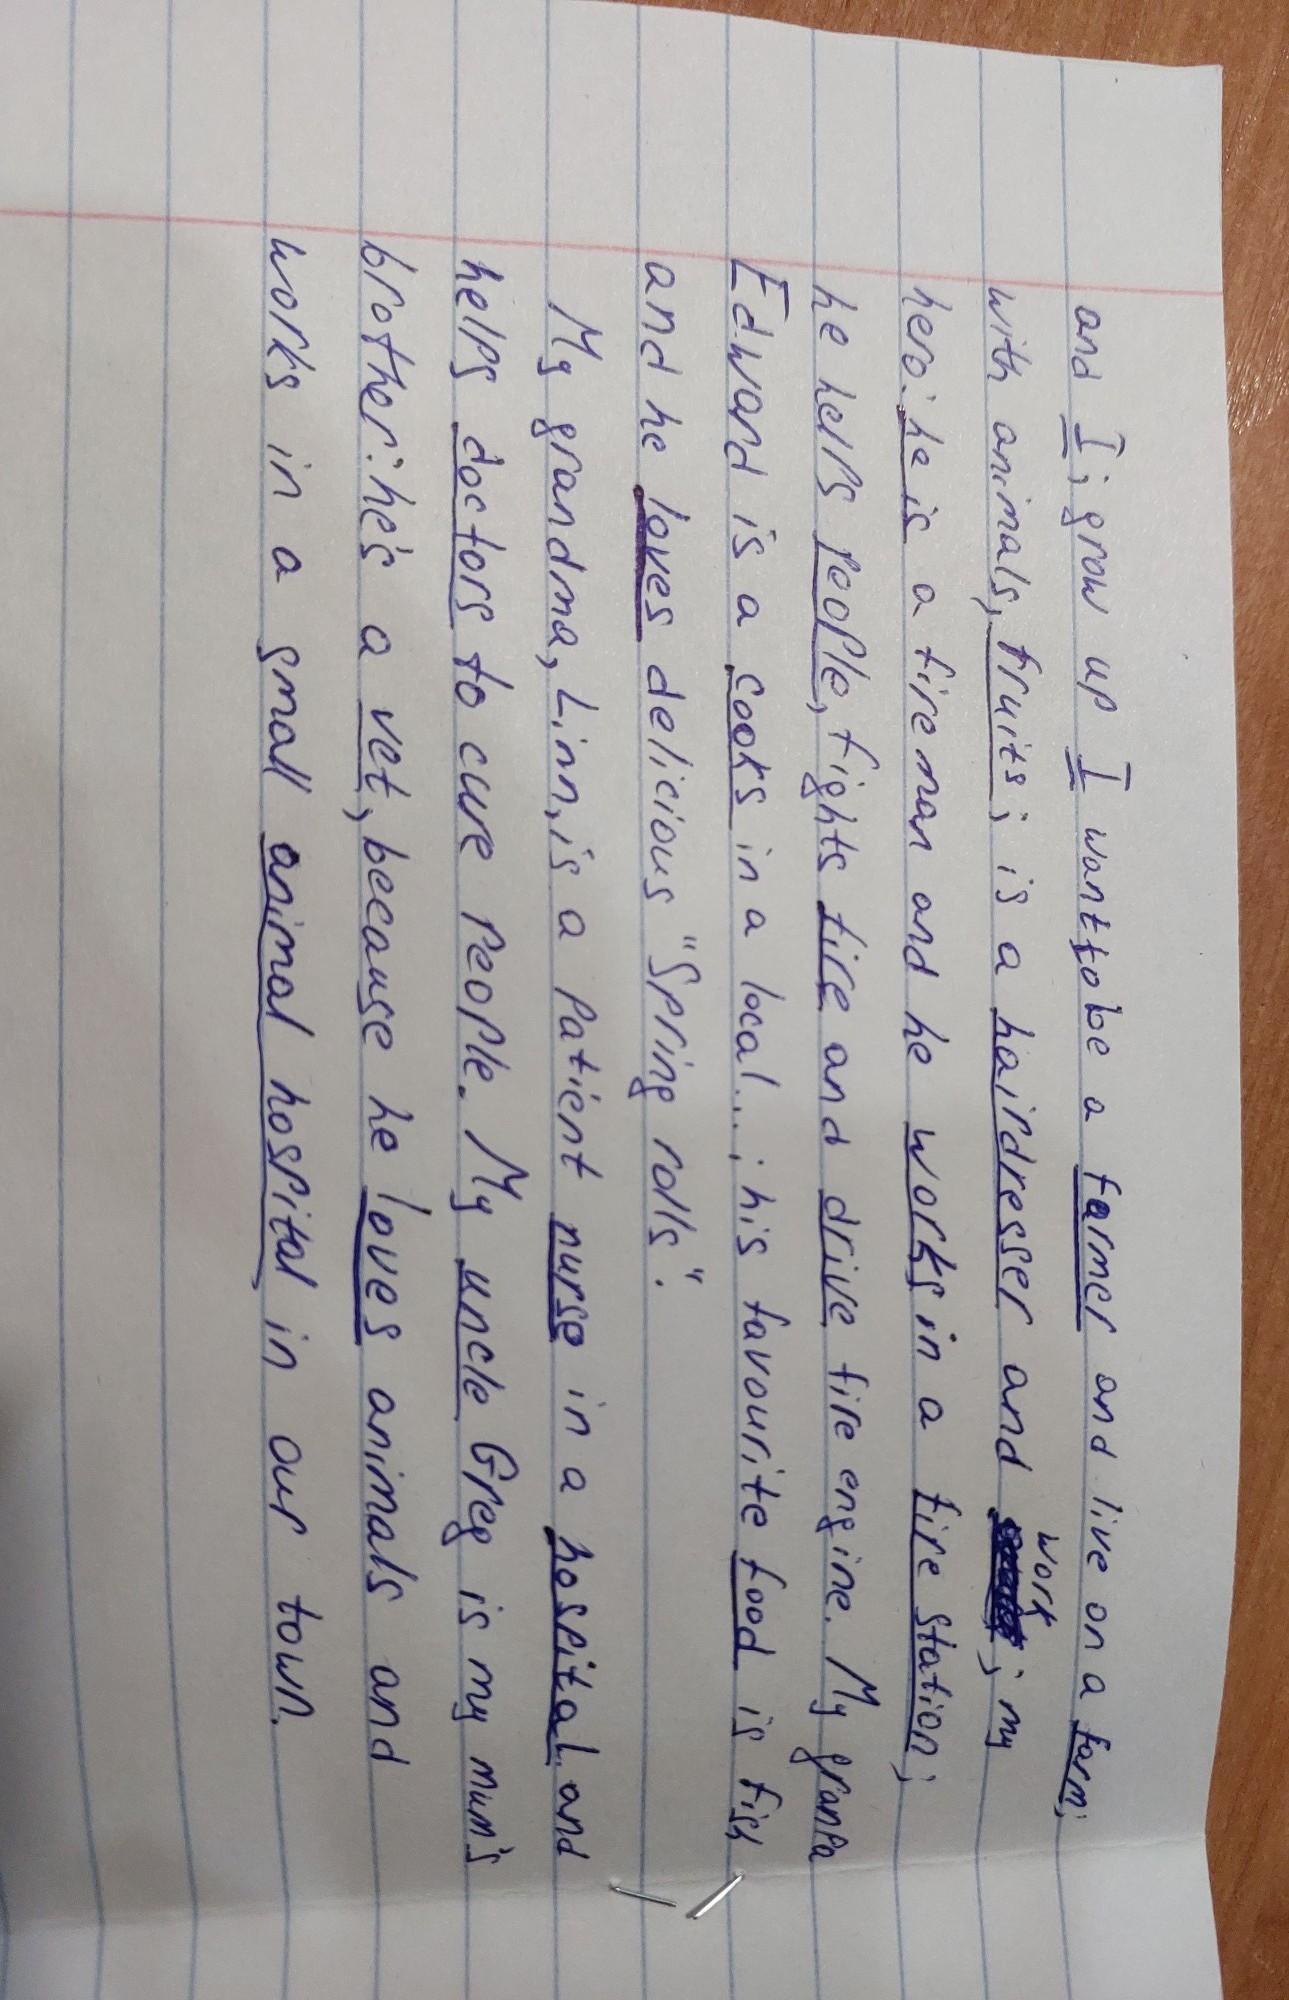 and I; grow up I want to be a farmer and live on a farm;
with animals, fruits; is a hairdresser and work; my
hero: he is a fireman and he works in a fire station;
he helps people, fights fire and drive fire engine. My granpa
Edward is a cooks in a local...; his favourite food is fish
and he loves delicious "Spring rolls".
My grandma, Linn, is a patient nurse in a hospital and
helps doctors to cure people. My uncle Greg is my mum's
brother: he's a vet, because he loves animals and
works in a small animal hospital in our town.